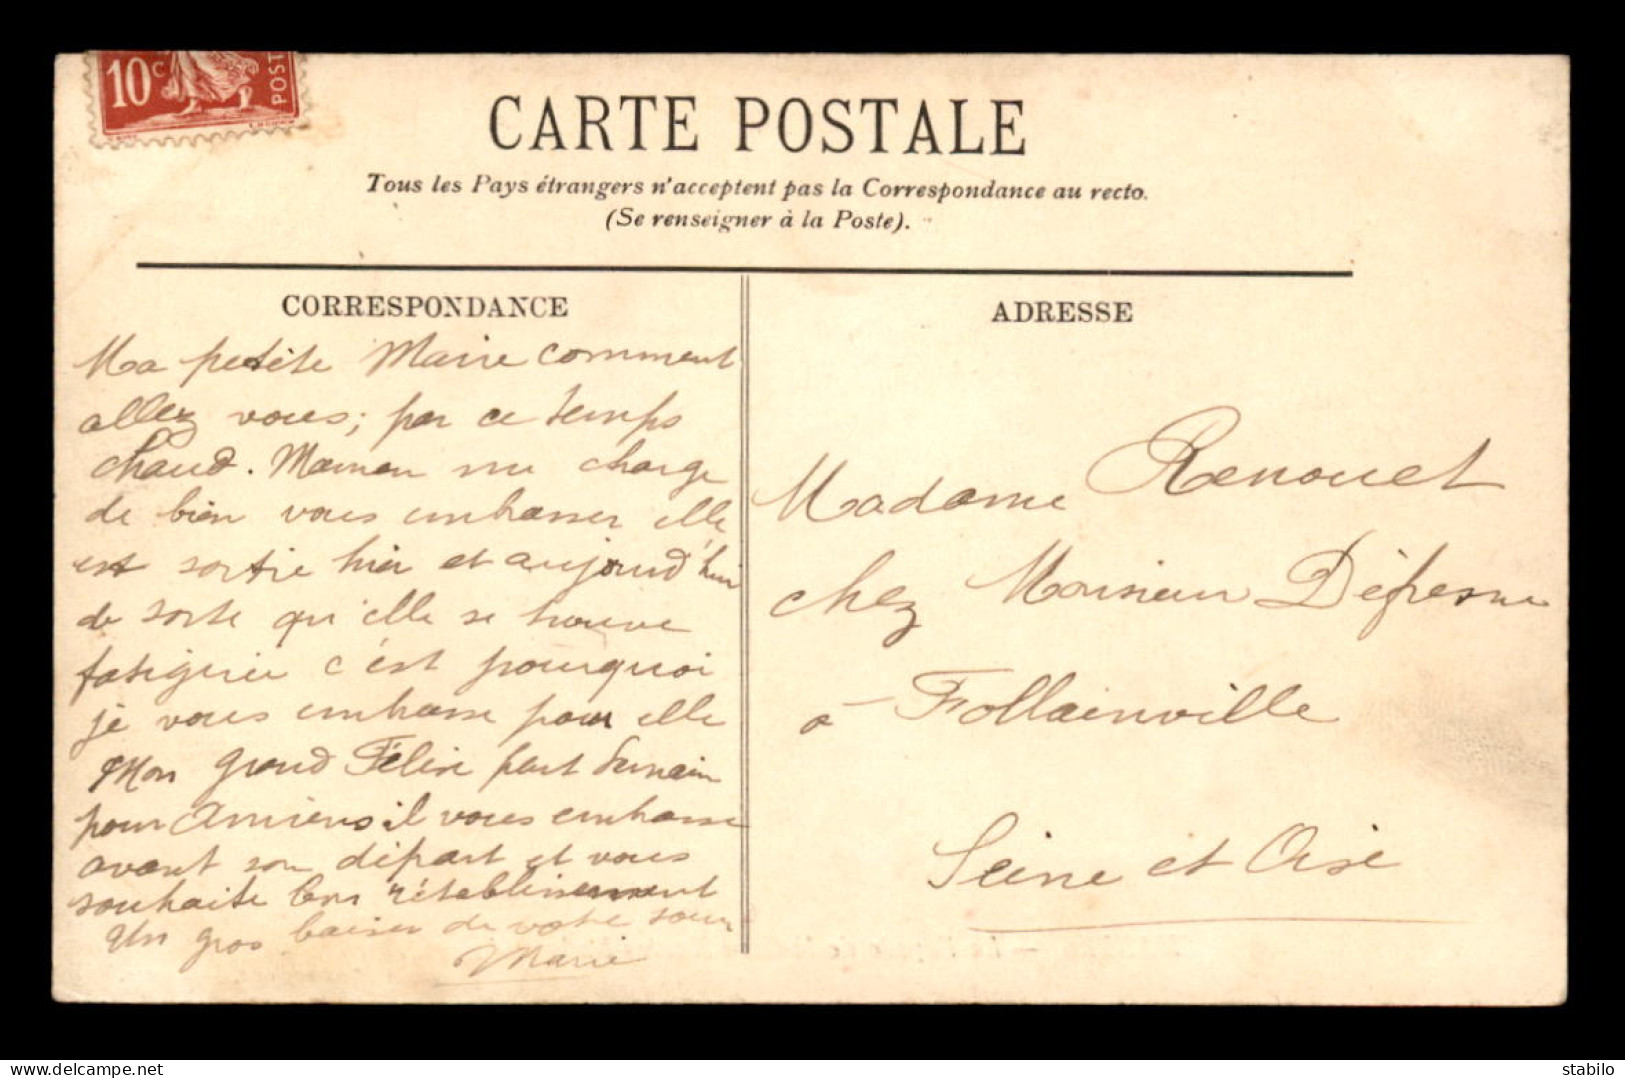 10c
POST
CARTE POSTALE
Tous les Pays étrangers n'acceptent pas la Correspondance au recto.
(Se renseigner à la Poste).
CORRESPONDANCE
Ma petite Marie comment
allez vous; par ce temps
chaud. Maman me charge
de bien vous embrasser elle
est sortie hier et aujourd'hui
de sorte qu'elle se trouve
fatiguée c'est pourquoi
je vous embrasse pour elle
Mon grand Félix part demain
pour Amiens il vous embrasse
avant son départ et vous
souhaite bon rétablissement
Un gros baiser de votre sœur
Marie
ADRESSE
Madame Renouet
chez Monsieur Défresne
à Follainville
Seine et Oise
delcampe.net
stabilo